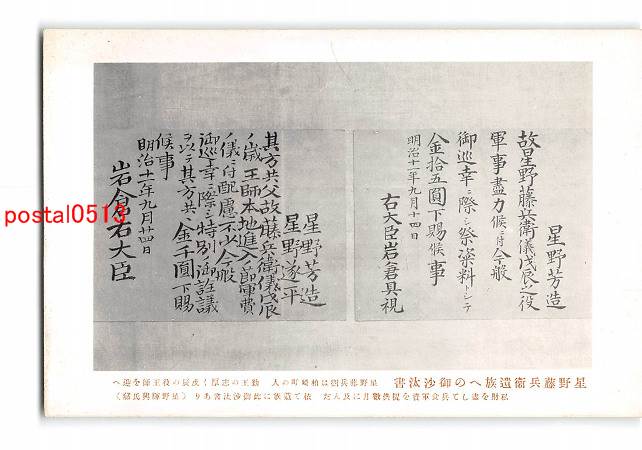 星野芳造
故星野藤兵衛儀戊辰之役
軍事盡力候ニ付今般
御巡幸ニ際シ祭粢料トシテ
金拾五圓下賜候事
明治十一年九月十四日
右大臣岩倉具視
星野芳造
星野遂平
其方共父故藤兵衛儀戊辰
ノ歳王師本地進入ノ節軍費
ノ儀ニ付配慮不少今般
御巡幸ニ際シ特別ノ御詮議
ヲ以テ其方共ヘ金千圓下賜
候事
明治十一年九月廿四日
岩倉右大臣
星野藤兵衞遺族への御沙汰書
星野藤兵衞は柏崎町の人 勤王の志厚く戊辰の役王師を迎へ
私財を盡して兵食軍資を提供數月に及んだ 依て遺族に此御沙汰書あり（星野輝興氏藏）
postal0513